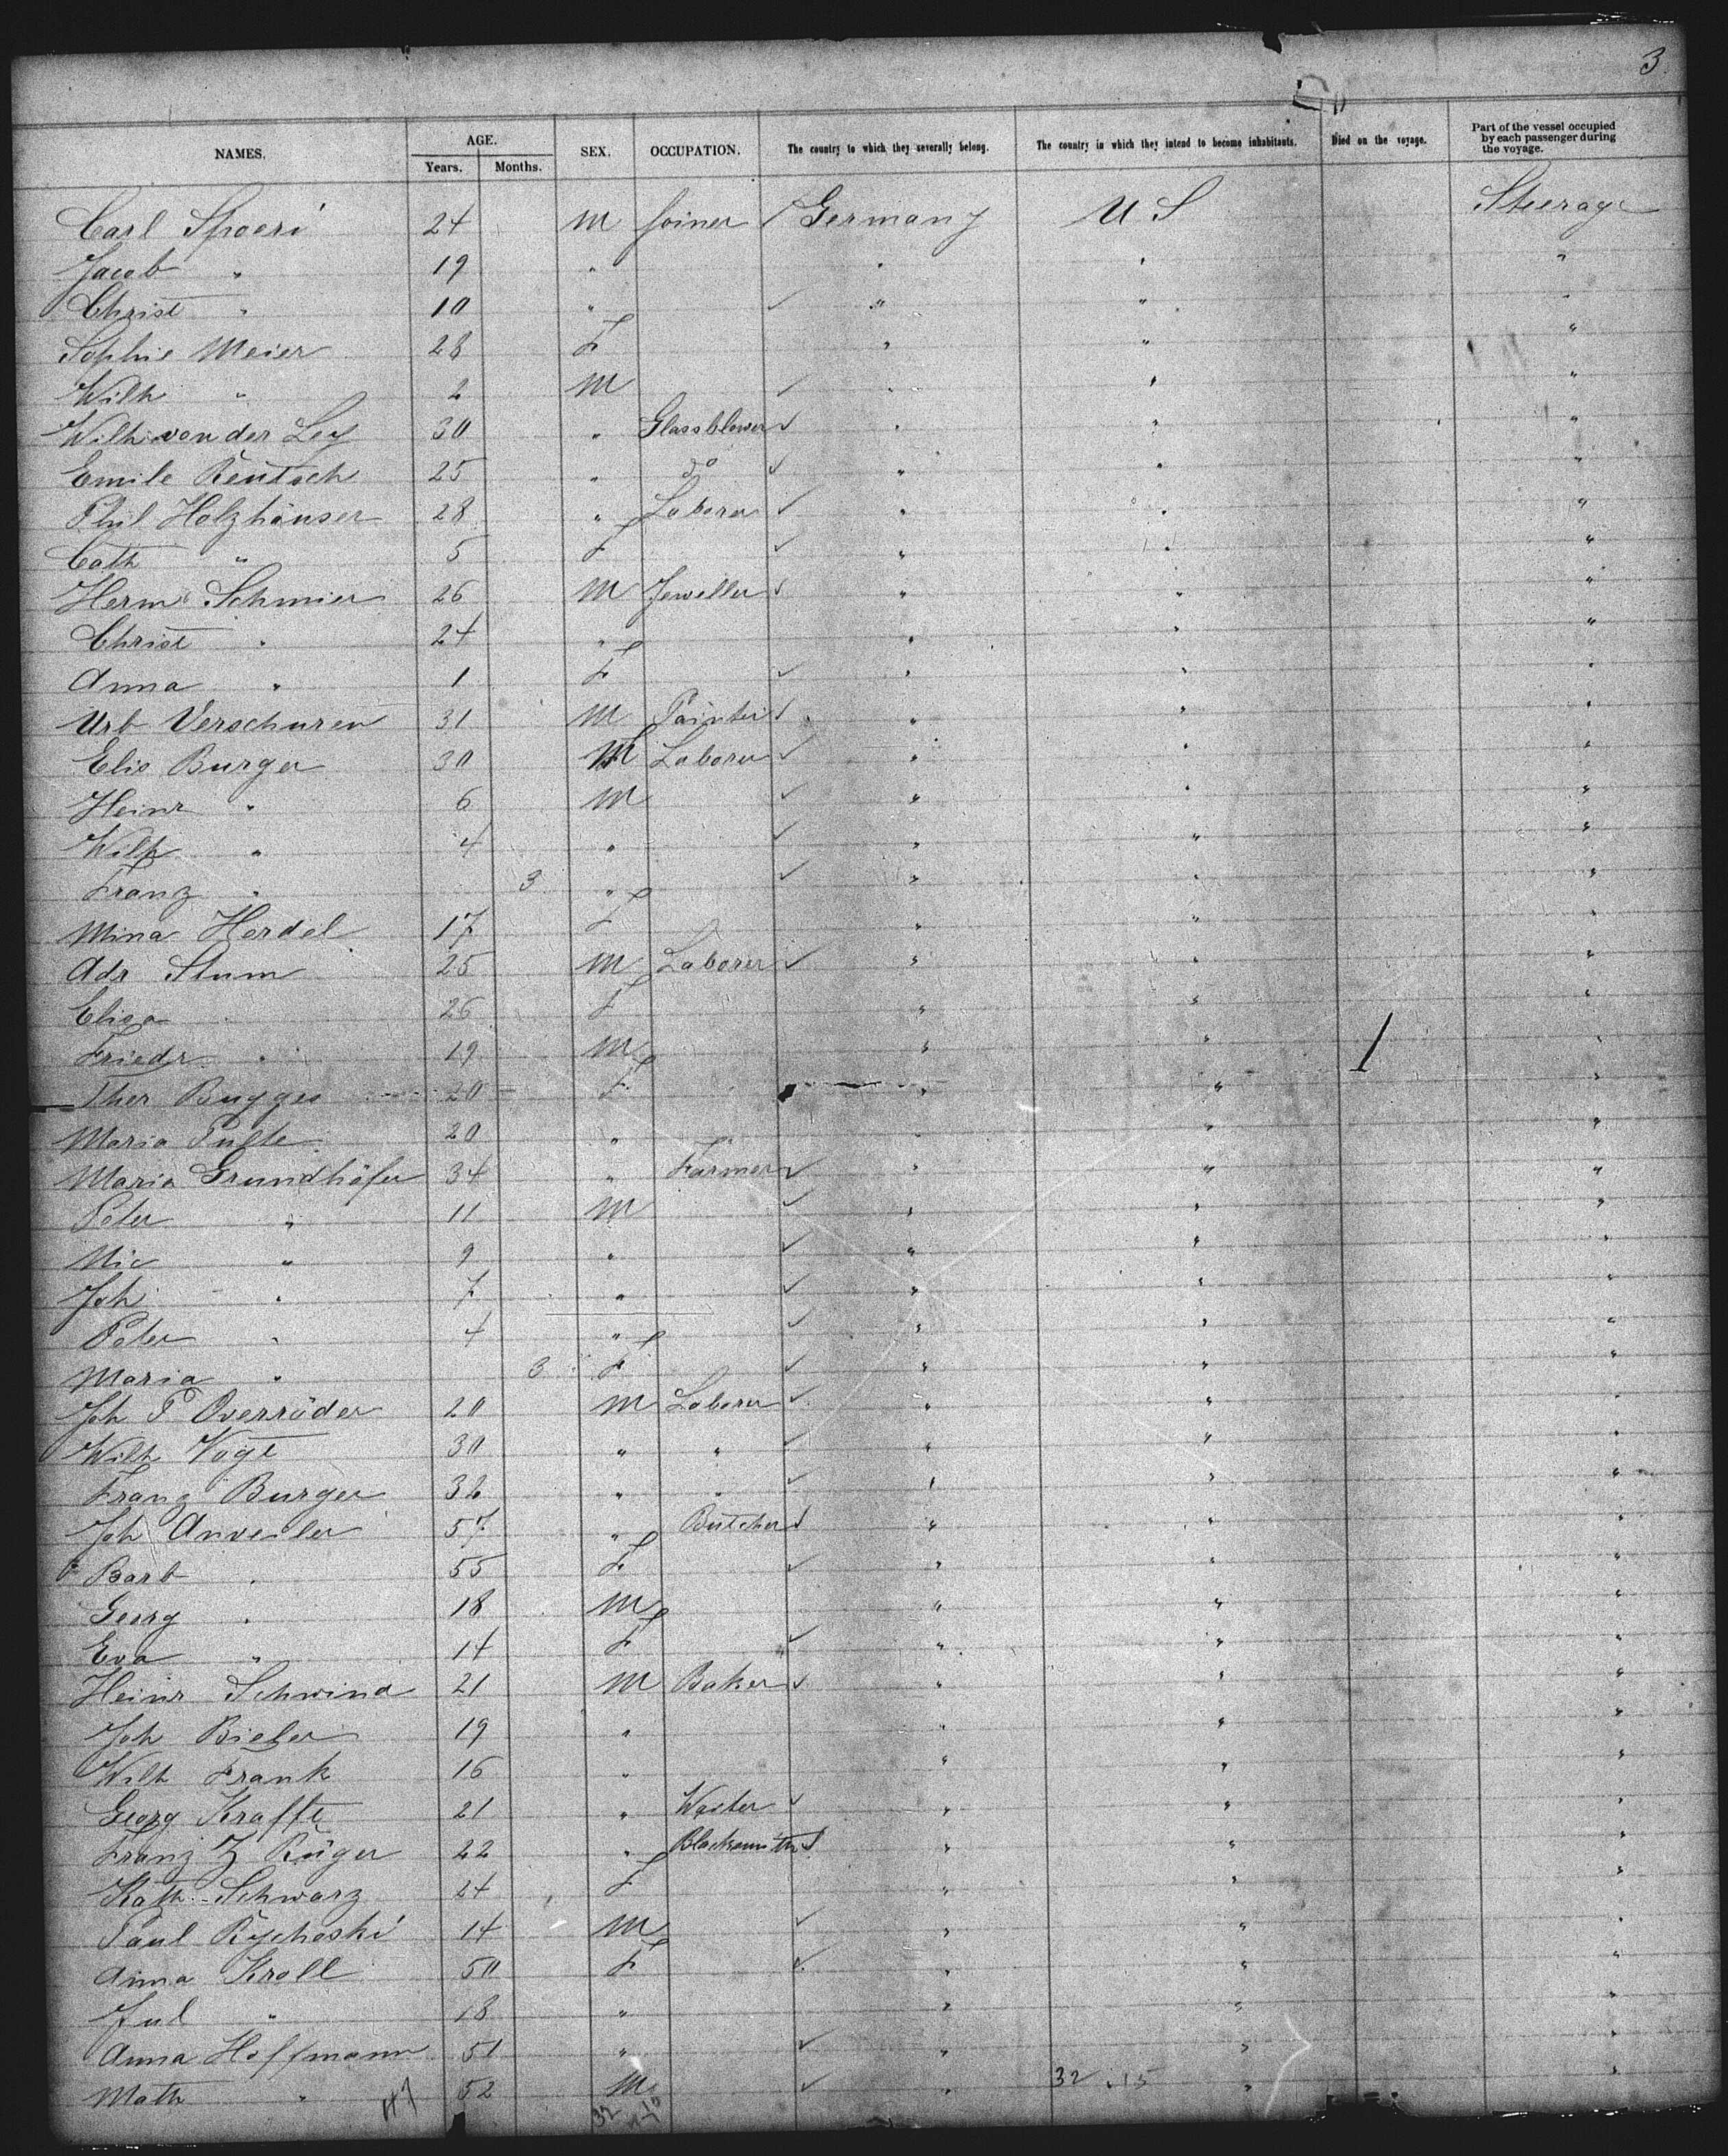 3.
NAMES. AGE. Years. Months. SEX. OCCUPATION. The country to which they severally belong. The country in which they intend to become inhabitants. Died on the voyage. Part of the vessel occupied by each passenger during the voyage.
Carl Spoeri 24 M Joiner ✓ Germany U S Steerage
Jacob " 19 " " " "
Christ " 10 " ✓ " " "
Sophie Meier 28 F " " "
Wilh " 2 M ✓ " " "
Wilh von der Ley 30 " Glassblower ✓ " " "
Emile Rentsch 25 " do ✓ " " "
Phil Holzhäuser 28 " Laborer ✓ " " "
Cath " 5 F ✓ " " "
Herm Schmier 26 M Jeweller ✓ " " "
Christ " 24 " " " "
Anna " 1 F ✓ " " "
Urb Verschuren 31 M Painter ✓ " " "
Elis Burger 30 M Laborer ✓ " " "
Heinr " 6 M ✓ " " "
Wilh " 4 " ✓ " " "
Franz " 3 " ✓ " " "
Mina Herdel 17 F " " "
Adr Stum 25 M Laborer ✓ " " "
Elisa 26 F " " "
Friedr " 19 M " " 1 "
Ther Bugges 20 F " " "
Maria Pulte 20 " " " "
Maria Grundhöfer 34 " Farmer ✓ " " "
Peter " 11 M ✓ " " "
Nic " 9 " ✓ " " "
Joh " 7 " ✓ " " "
Peter " 4 " ✓ " " "
Maria " 3 F ✓ " " "
Joh P Overröder 20 M Laborer ✓ " " "
Wilh Vogt 30 " " ✓ " " "
Franz Burger 32 " " ✓ " " "
Joh Anveiler 57 " Butcher ✓ " " "
Barb " 55 F ✓ " " "
Georg " 18 M " " "
Eva " 14 F ✓ " " "
Heinr Schwind 21 M Baker ✓ " " "
Joh Bieber 19 " " " "
Wilh Frank 16 " " " "
Georg Krafft 21 " Waiter ✓ " " "
Franz Z Rüger 22 " Blacksmith ✓ " " "
Kath Schwarz 24 F " " "
Paul Rychoski 14 M ✓ " " "
Anna Kroll 50 F ✓ " " "
Jul " 18 " " " "
Anna Hoffmann 51 " ✓ " " "
Math " 52 M ✓ " " "
47 32 32 . 15